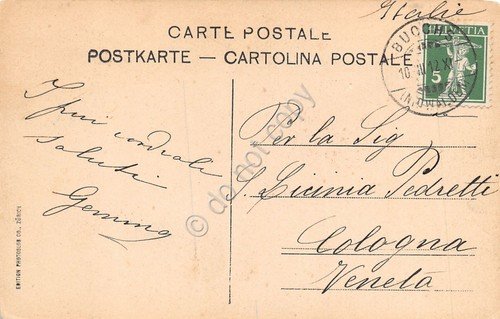 Italie
CARTE POSTALE
POSTKARTE — CARTOLINA POSTALE
HELVETIA
5
BUOCHS
10.III.12.XI
(NIDWALDEN)
I più cordiali
saluti
Gemma
Per la Sig
S. Licinia Pedretti
Cologna
Veneta
© do not copy
EDITION PHOTOGLOB CO., ZÜRICH